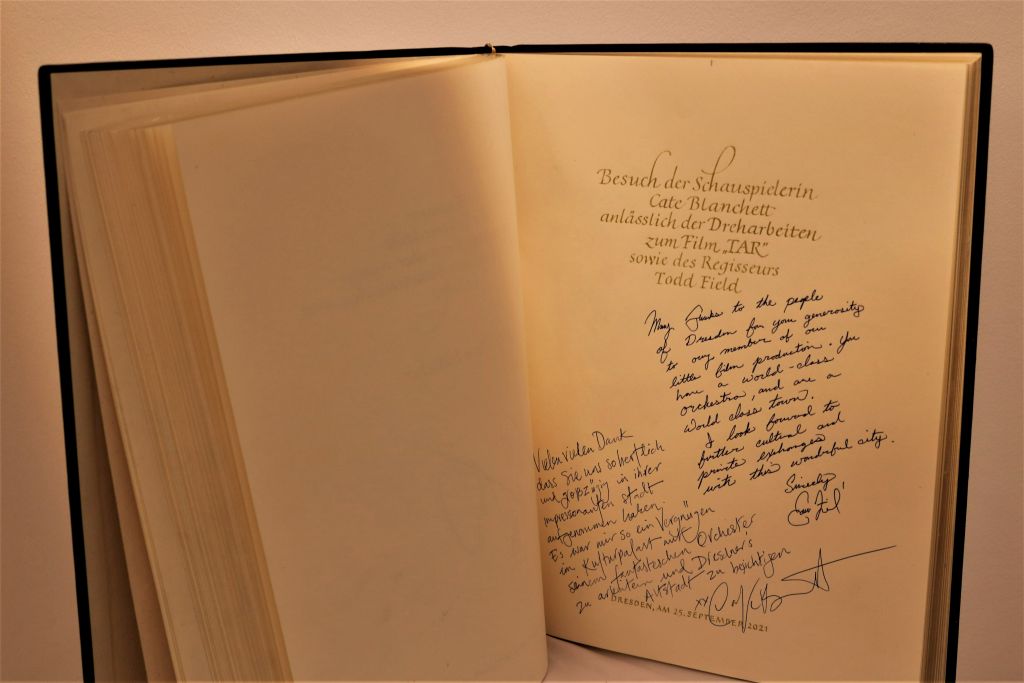 Besuch der Schauspielerin
Cate Blanchett
anlässlich der Dreharbeiten
zum Film „TAR"
sowie des Regisseurs
Todd Field
Many Thanks to the people
of Dresden for your generosity
to our member of our
little film production. You
have a world-class
orchestra, and are a
world class town.
I look forward to
further cultural and
private exchanges
with this wonderful city.
Sincerely
Vielen vielen Dank
dass Sie uns so herzlich
und großzügig in ihrer
impressonanten Stadt
aufgenommen haben.
Es war mir so ein Vergnügen
im Kulturpalast mit
seinem fantastischen Orchester
zu arbeiten und Dresden's
Altstadt zu besichtigen
xx
DRESDEN, AM 25. SEPTEMBER 2021